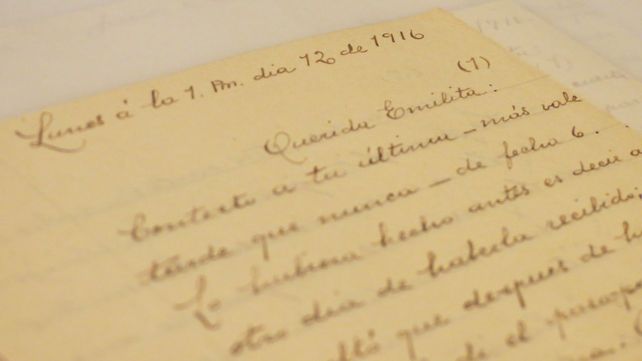 Lunes á la 1. Pm. dia 12 de 1916
(1)
Querida Emilita:
Contesto a tu última – más vale
tarde que nunca – de fecha 6.
Lo hubiera hecho antes es decir a
otro dia de haberla recibido.
que despues de h
el